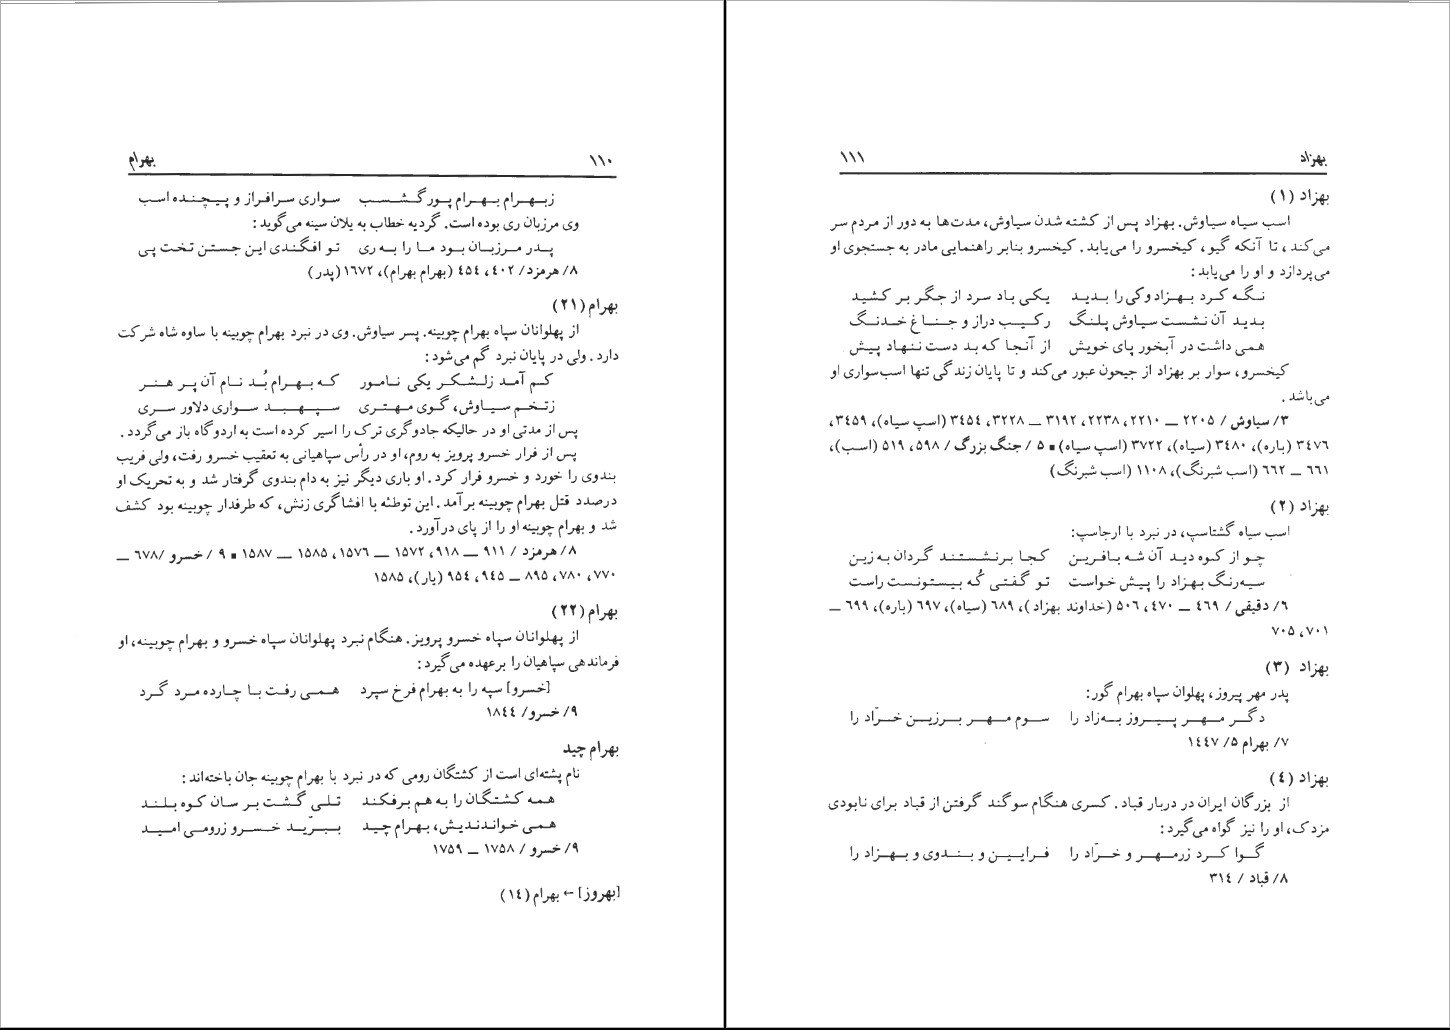 بهرام ۱۱۰
زبهرام بهرام پورگشسب سواری سرافراز و پیچنده اسب
وی مرزبان ری بوده است. گردیه خطاب به یلان سینه می‌گوید:
پدر مرزبان بود ما را به ری تو افگندی این جستن تخت پی
۸/ هرمزد/ ۴۰۲، ۴۵۴ (بهرام بهرام)، ۱۶۷۲ (پدر)
بهرام (۲۱)
از پهلوانان سپاه بهرام چوبینه. پسر سیاوش. وی در نبرد بهرام چوبینه با ساوه شاه شرکت
دارد. ولی در پایان نبرد گم می‌شود:
کم آمد زلشکر یکی نامور که بهرام بُد نام آن پر هنر
زتخم سیاوش، گوی مهتری سپهبد سواری دلاور سری
پس از مدتی او در حالیکه جادوگری ترک را اسیر کرده است به اردوگاه باز می‌گردد.
پس از فرار خسرو پرویز به روم، او در رأس سپاهیانی به تعقیب خسرو رفت، ولی فریب
بندوی را خورد و خسرو فرار کرد. او باری دیگر نیز به دام بندوی گرفتار شد و به تحریک او
درصدد قتل بهرام چوبینه برآمد. این توطئه با افشاگری زنش، که طرفدار چوبینه بود کشف
شد و بهرام چوبینه او را از پای درآورد.
۸/ هرمزد / ۹۱۱ ــ ۹۱۸، ۱۵۷۲ ــ ۱۵۷۶، ۱۵۸۵ ــ ۱۵۸۷ ■ ۹ / خسرو /۶۷۸ ــ
۷۷۰، ۷۸۰، ۸۹۵ ــ ۹۴۵، ۹۵۴ (یار)، ۱۵۸۵
بهرام (۲۲)
از پهلوانان سپاه خسرو پرویز. هنگام نبرد پهلوانان سپاه خسرو و بهرام چوبینه، او
فرماندهی سپاهیان را برعهده می‌گیرد:
[خسرو] سپه را به بهرام فرخ سپرد همی رفت با چارده مرد گرد
۹/ خسرو/ ۱۸۴۴
بهرام چید
نام پشته‌ای است از کشتگان رومی که در نبرد با بهرام چوبینه جان باخته‌اند:
همه کشتگان را به هم برفکند تلی گشت بر سان کوه بلند
همی خواندندیش، بهرام چید ببرّید خسرو زرومی امید
۹/ خسرو / ۱۷۵۸ ــ ۱۷۵۹
[بهروز] ← بهرام (۱۴)
بهزاد ۱۱۱
بهزاد (۱)
اسب سیاه سیاوش. بهزاد پس از کشته شدن سیاوش، مدت‌ها به دور از مردم سر
می‌کند، تا آنکه گیو، کیخسرو را می‌یابد. کیخسرو بنابر راهنمایی مادر به جستجوی او
می‌پردازد و او را می‌یابد:
نگه کرد بهزاد وکی را بدید یکی باد سرد از جگر بر کشید
بدید آن نشست سیاوش پلنگ رکیب دراز و جناغ خدنگ
همی داشت در آبخور پای خویش از آنجا که بد دست ننهاد پیش
کیخسرو، سوار بر بهزاد از جیحون عبور می‌کند و تا پایان زندگی تنها اسب‌سواری او
می‌باشد.
۳/ سیاوش / ۲۲۰۵ ــ ۲۲۱۰، ۲۲۳۸، ۳۱۹۲ ــ ۳۲۲۸، ۳۴۵۴ (اسپ سیاه)، ۳۴۵۹،
۳۴۷۶ (باره)، ۳۴۸۰ (سیاه)، ۳۷۲۲ (اسپ سیاه) ■ ۵ / جنگ بزرگ / ۵۹۸، ۵۱۹ (اسب)،
۶۶۱ ــ ۶۶۲ (اسب شبرنگ)، ۱۱۰۸ (اسب شبرنگ)
بهزاد (۲)
اسب سیاه گشتاسپ، در نبرد با ارجاسپ:
چو از کوه دید آن شه بافرین کجا برنشستند گردان به زین
سیه‌رنگ بهزاد را پیش خواست تو گفتی کُه بیستونست راست
۶/ دقیقی / ۴۶۹ ــ ۴۷۰، ۵۰۶ (خداوند بهزاد)، ۶۸۹ (سیاه)، ۶۹۷ (باره)، ۶۹۹ ــ
۷۰۱، ۷۰۵
بهزاد (۳)
پدر مهر پیروز، پهلوان سپاه بهرام گور:
دگر مهر پیروز به‌زاد را سوم مهر برزین خرّاد را
۷/ بهرام ۵/ ۱۴۴۷
بهزاد (۴)
از بزرگان ایران در دربار قباد. کسری هنگام سوگند گرفتن از قباد برای نابودی
مزدک، او را نیز گواه می‌گیرد:
گوا کرد زرمهر و خرّاد را فرایین و بندوی و بهزاد را
۸/ قباد / ۳۱۴